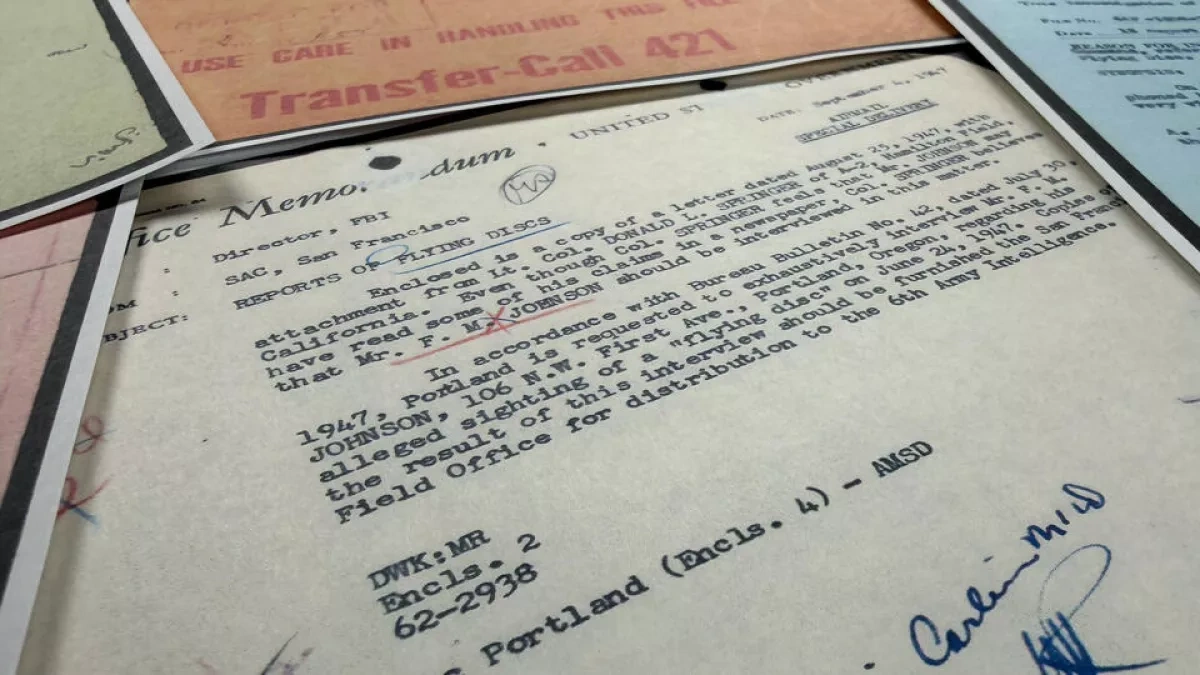 USE CARE IN HANDLING THIS FILE
Transfer-Call 421
ffice Memo dum • UNITED ST
OVERNME
DATE: September 2, 1947
Director, FBI
AIRMAIL
SPECIAL DELIVERY
OM :
SAC, San Francisco
BJECT:
REPORTS OF FLYING DISCS
Enclosed is a copy of a letter dated August 25, 1947, with
attachment from Lt. Col. DONALD L. SPRINGER of A-2, Hamilton Field,
California. Even though Col. SPRINGER feels that Mr. JOHNSON may
have read some of his claims in a newspaper, Col. SPRINGER believes
that Mr. F. M. JOHNSON should be interviewed in this matter.
In accordance with Bureau Bulletin No. 42, dated July 30,
1947, Portland is requested to exhaustively interview Mr. F. M.
JOHNSON, 106 N.W. First Ave., Portland, Oregon, regarding his
alleged sighting of a "flying disc" on June 24, 1947. Copies of
the result of this interview should be furnished the San Franc
Field Office for distribution to the 6th Army Intelligence.
DWK:MR
Encls. 2
62-2938
Portland (Encls. 4) - AMSD